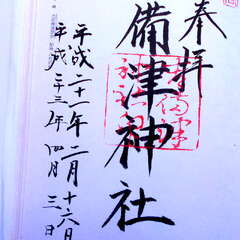 奉拝
備津神社
平成二十一年二月十六日
平成二十三年四月三日